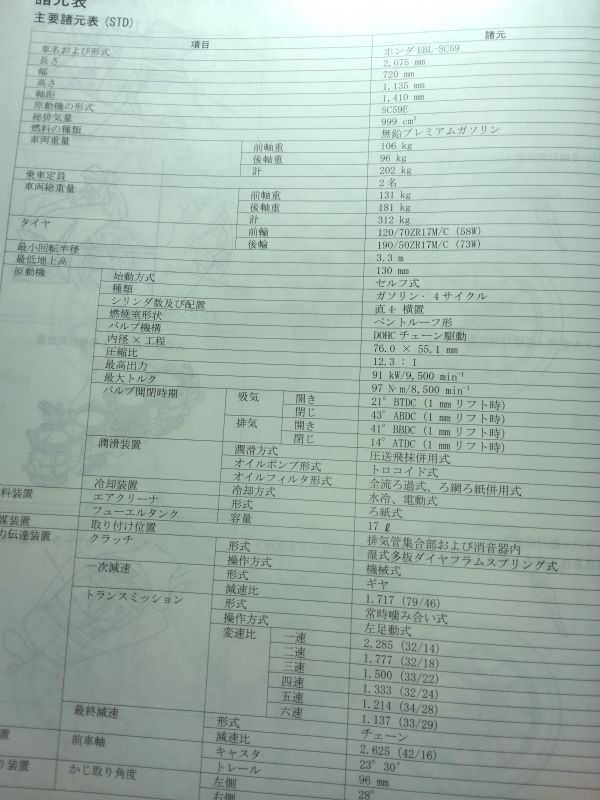 諸元表
主要諸元表 (STD)
項目 諸元
車名および形式 ホンダ EBL-SC59
長さ 2,075 mm
幅 720 mm
高さ 1,135 mm
軸距 1,410 mm
原動機の形式 SC59E
総排気量 999 cm³
燃料の種類 無鉛プレミアムガソリン
車両重量 前軸重 106 kg
後軸重 96 kg
計 202 kg
乗車定員 2 名
車両総重量 前軸重 131 kg
後軸重 181 kg
計 312 kg
タイヤ 前輪 120/70ZR17M/C (58W)
後輪 190/50ZR17M/C (73W)
最小回転半径 3.3 m
最低地上高 130 mm
原動機 始動方式 セルフ式
種類 ガソリン・4サイクル
シリンダ数及び配置 直4 横置
燃焼室形状 ペントルーフ形
バルブ機構 DOHC チェーン駆動
内径 × 工程 76.0 × 55.1 mm
圧縮比 12.3 : 1
最高出力 91 kW/9,500 min⁻¹
最大トルク 97 N·m/8,500 min⁻¹
バルブ開閉時期 吸気 開き 21° BTDC (1 mm リフト時)
閉じ 43° ABDC (1 mm リフト時)
排気 開き 41° BBDC (1 mm リフト時)
閉じ 14° ATDC (1 mm リフト時)
潤滑装置 潤滑方式 圧送飛抹併用式
オイルポンプ形式 トロコイド式
オイルフィルタ形式 全流ろ過式、ろ網ろ紙併用式
冷却装置 冷却方式 水冷、電動式
料装置 エアクリーナ 形式 ろ紙式
フューエルタンク 容量 17 ℓ
媒装置 取り付け位置 排気管集合部および消音器内
力伝達装置 クラッチ 形式 湿式多板ダイヤフラムスプリング式
操作方式 機械式
一次減速 形式 ギヤ
減速比 1.717 (79/46)
トランスミッション 形式 常時噛み合い式
操作方式 左足動式
変速比 一速 2.285 (32/14)
二速 1.777 (32/18)
三速 1.500 (33/22)
四速 1.333 (32/24)
五速 1.214 (34/28)
六速 1.137 (33/29)
最終減速 形式 チェーン
減速比 2.625 (42/16)
置 前車軸 キャスタ 23° 30′
トレール 96 mm
り装置 かじ取り角度 左側 28°
右側